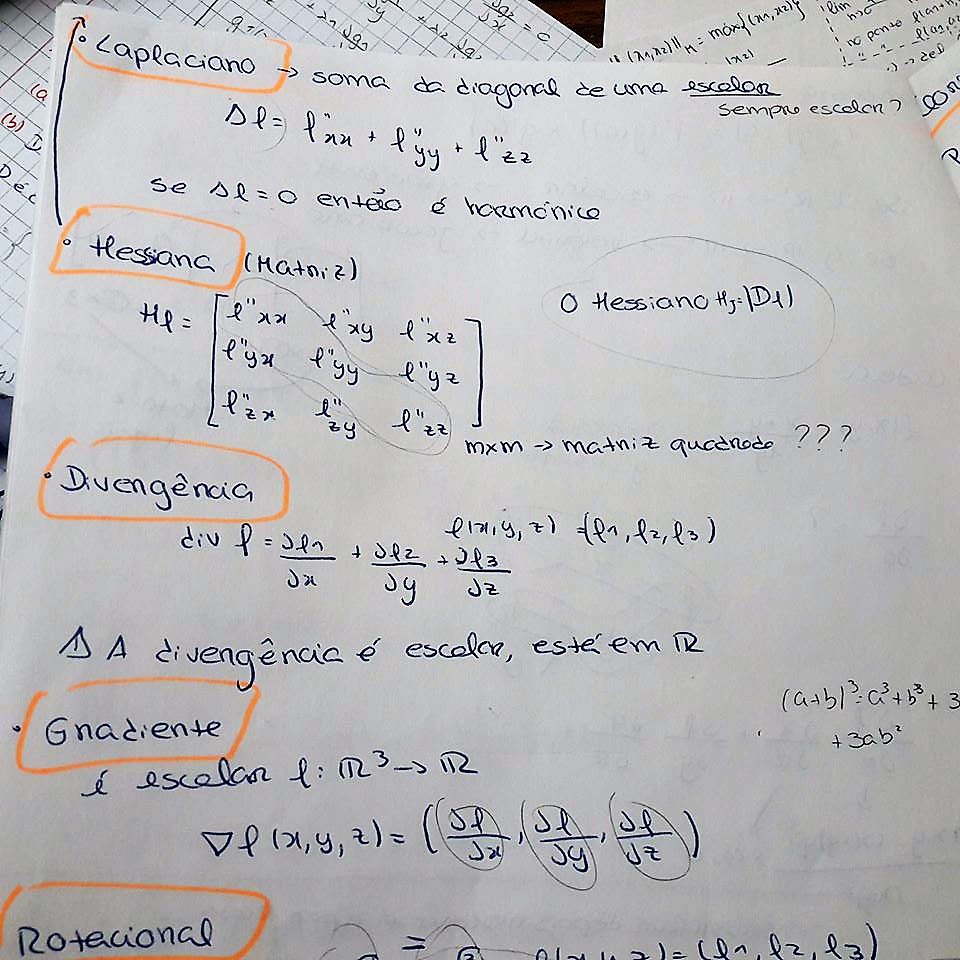 • Laplaciano → soma da diagonal de uma escalar
sempre escalar?
Δf = f''xx + f''yy + f''zz
se Δf = 0 então é harmónico
• Hessiana (Matriz)
O Hessiano Hf = |Df|
Hf = [ f''xx f''xy f''xz
f''yx f''yy f''yz
f''zx f''zy f''zz ]
m×m → matriz quadrada ???
• Divergência
f(x, y, z) = (f1, f2, f3)
div f = ∂f1/∂x + ∂f2/∂y + ∂f3/∂z
⚠ A divergência é escalar, está em ℝ
(a+b)³ = a³ + b³ + 3
+ 3ab²
• Gradiente
é escalar f: ℝ³ → ℝ
∇f (x, y, z) = (∂f/∂x, ∂f/∂y, ∂f/∂z)
Rotacional
f(x, y, z) = (f1, f2, f3)